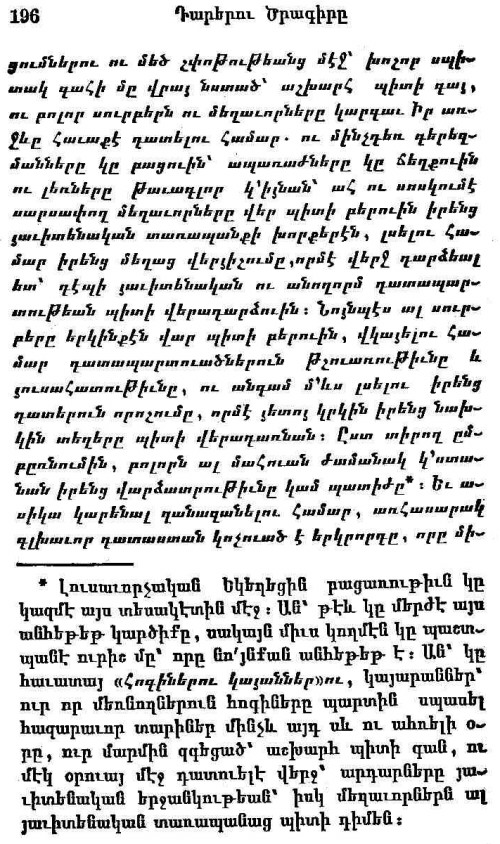 196 Դարերու Ծրագիրը
ցումներու ու մեծ շփոթութեանց մէջ՝ խոշոր սպի-
տակ գահի մը վրայ նստած՝ աշխարհ պիտի գայ,
ու բոլոր սուրբերն ու մեղաւորները կարգաւ Իր առ-
ջևը հաւաքէ դատելու համար. ու մինչդեռ գերեզ-
մանները կը բացուին՝ ապառաժները կը ճեղքուին
ու լեռները թաւագլոր կ՚իյնան՝ ահ ու սոսկումէ
սարսափող մեղաւորները վեր պիտի բերուին իրենց
յաւիտենական տառապանքի խորքերէն, լսելու հա-
մար իրենց մեղաց վերյիշումը,որմէ վերջ դարձեալ
ետ՝ դէպի յաւիտենական ու անողորմ դատապար-
տութեան պիտի վերադարձուին։ Նոյնպէս ալ սուր-
բերը երկինքէն վար պիտի բերուին, վկայելու հա-
մար դատապարտուածներուն թշուառութիւնը և
յուսահատութիւնը, ու անգամ մ՚ևս լսելու իրենց
դատերուն որոշումը, որմէ յետոյ կրկին իրենց նախ-
կին տեղերը պիտի վերադառնան։ Ըստ տիրող ըմ-
բըռնումին, բոլորն ալ մահուան ժամանակ կ՚ստա-
նան իրենց վարձատրութիւնը կամ պատիժը*։ Եւ ա-
սիկա կարենալ զանազանելու համար, առհասարակ
գլխաւոր դատաստան կոչուած է երկրորդը, որը մի-
* Լուսաւորչական Եկեղեցին բացառութիւն կը
կազմէ այս տեսակէտին մէջ։ Ան՝ թէև կը մերժէ այս
անհեթեթ կարծիքը, սակայն միւս կողմէն կը պաշտ-
պանէ ուրիշ մը՝ որը նո՛յնքան անհեթեթ է։ Ան՝ կը
հաւատայ «Հոգիներու կայաններ»ու, կայարաններ՝
ուր որ մեռնողներուն հոգիները պարտին սպասել
հազարաւոր տարիներ մինչև այդ սև ու ահռելի օ-
րը, ուր մարմին զգեցած՝ աշխարհ պիտի գան, ու
մէկ օրուայ մէջ դատուելէ վերջ՝ արդարները յա-
ւիտենական երջանկութեան՝ իսկ մեղաւորներն ալ
յաւիտենական տառապանաց պիտի դիմեն։